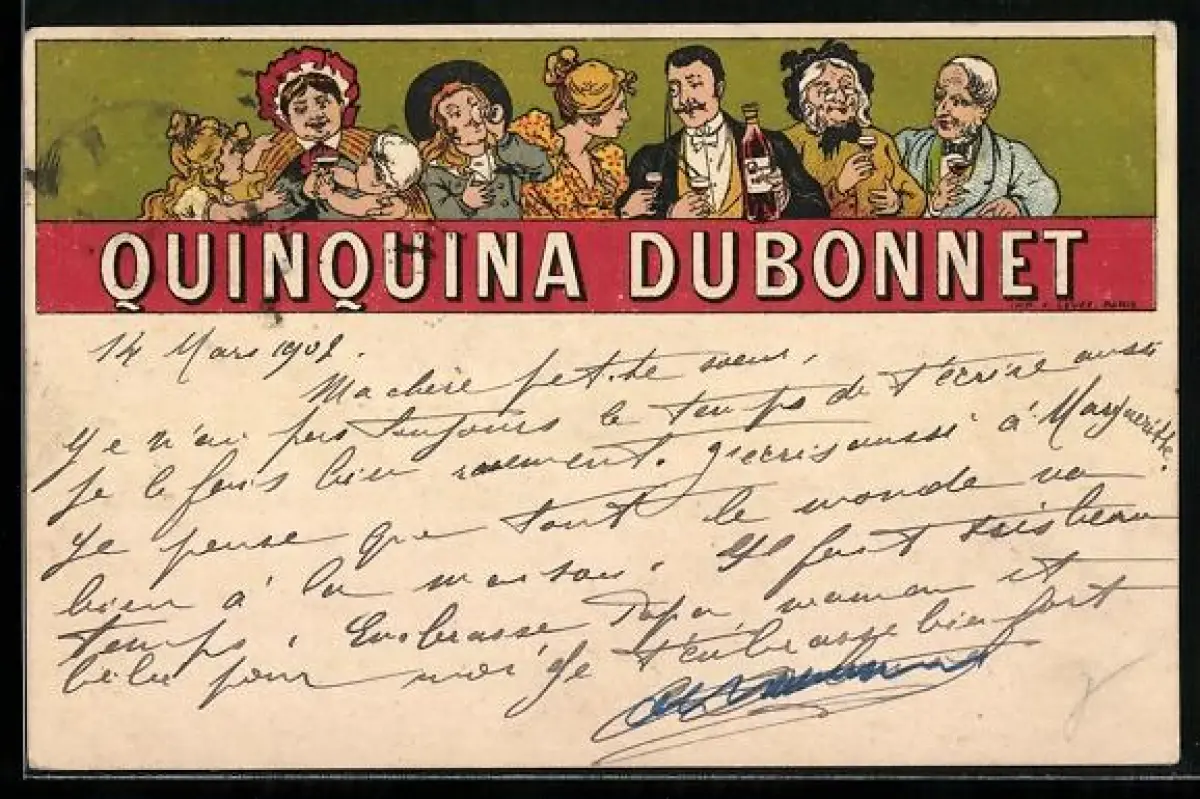 QUINQUINA DUBONNET
14 Mars 1902.
Ma chère petite sœur,
Je n'ai pas toujours le temps de t'écrire aussi
je le fais bien rarement. j'écris aussi à Marguerite.
Je pense que tout le monde va
bien à la maison. Il fait très beau
temps. Embrasse Papa, maman et
bébé pour moi Je t'embrasse bien fort